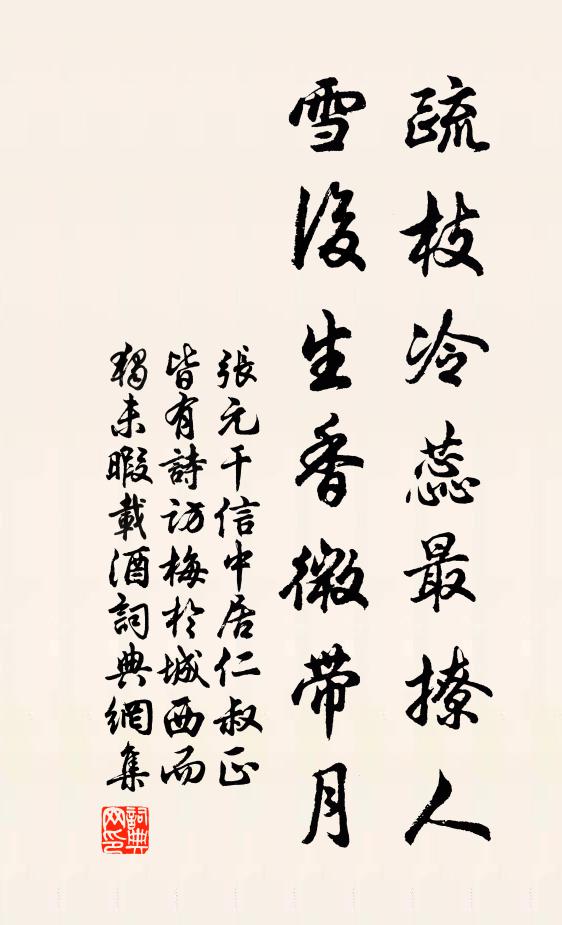 疏枝冷蕊最撩人
雪後生香微带月
張元干信中居仁叔正
皆有詩訪梅於城西而
獨未暇載酒詞典網集
詞典
网印